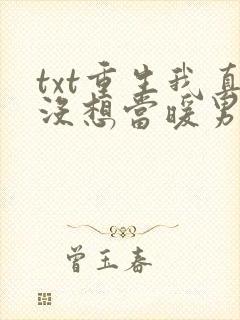 txt重生我真
没想当暖男
曾玉春